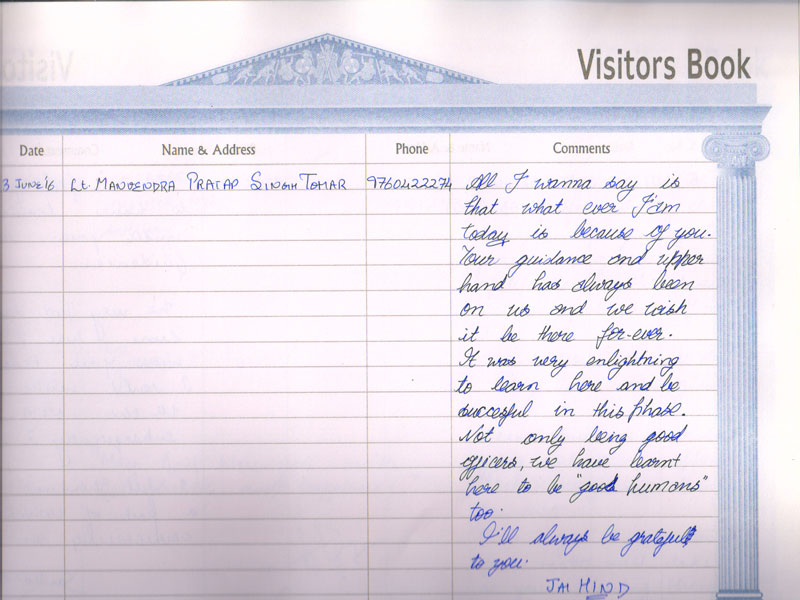 Visitors Book
Date Name & Address Phone Comments
3 JUNE'16 Lt. MANVENDRA PRATAP SINGH TOMAR 9760422274 All I wanna say is
that what ever I'am
today is because of you.
Your guidance and upper
hand has always been
on us and we wish
it be there for-ever.
It was very enlightning
to learn here and be
succesful in this phase.
Not only being good
officers, we have learnt
here to be "good humans"
too.
I'll always be grateful
to you.
JAI HIND